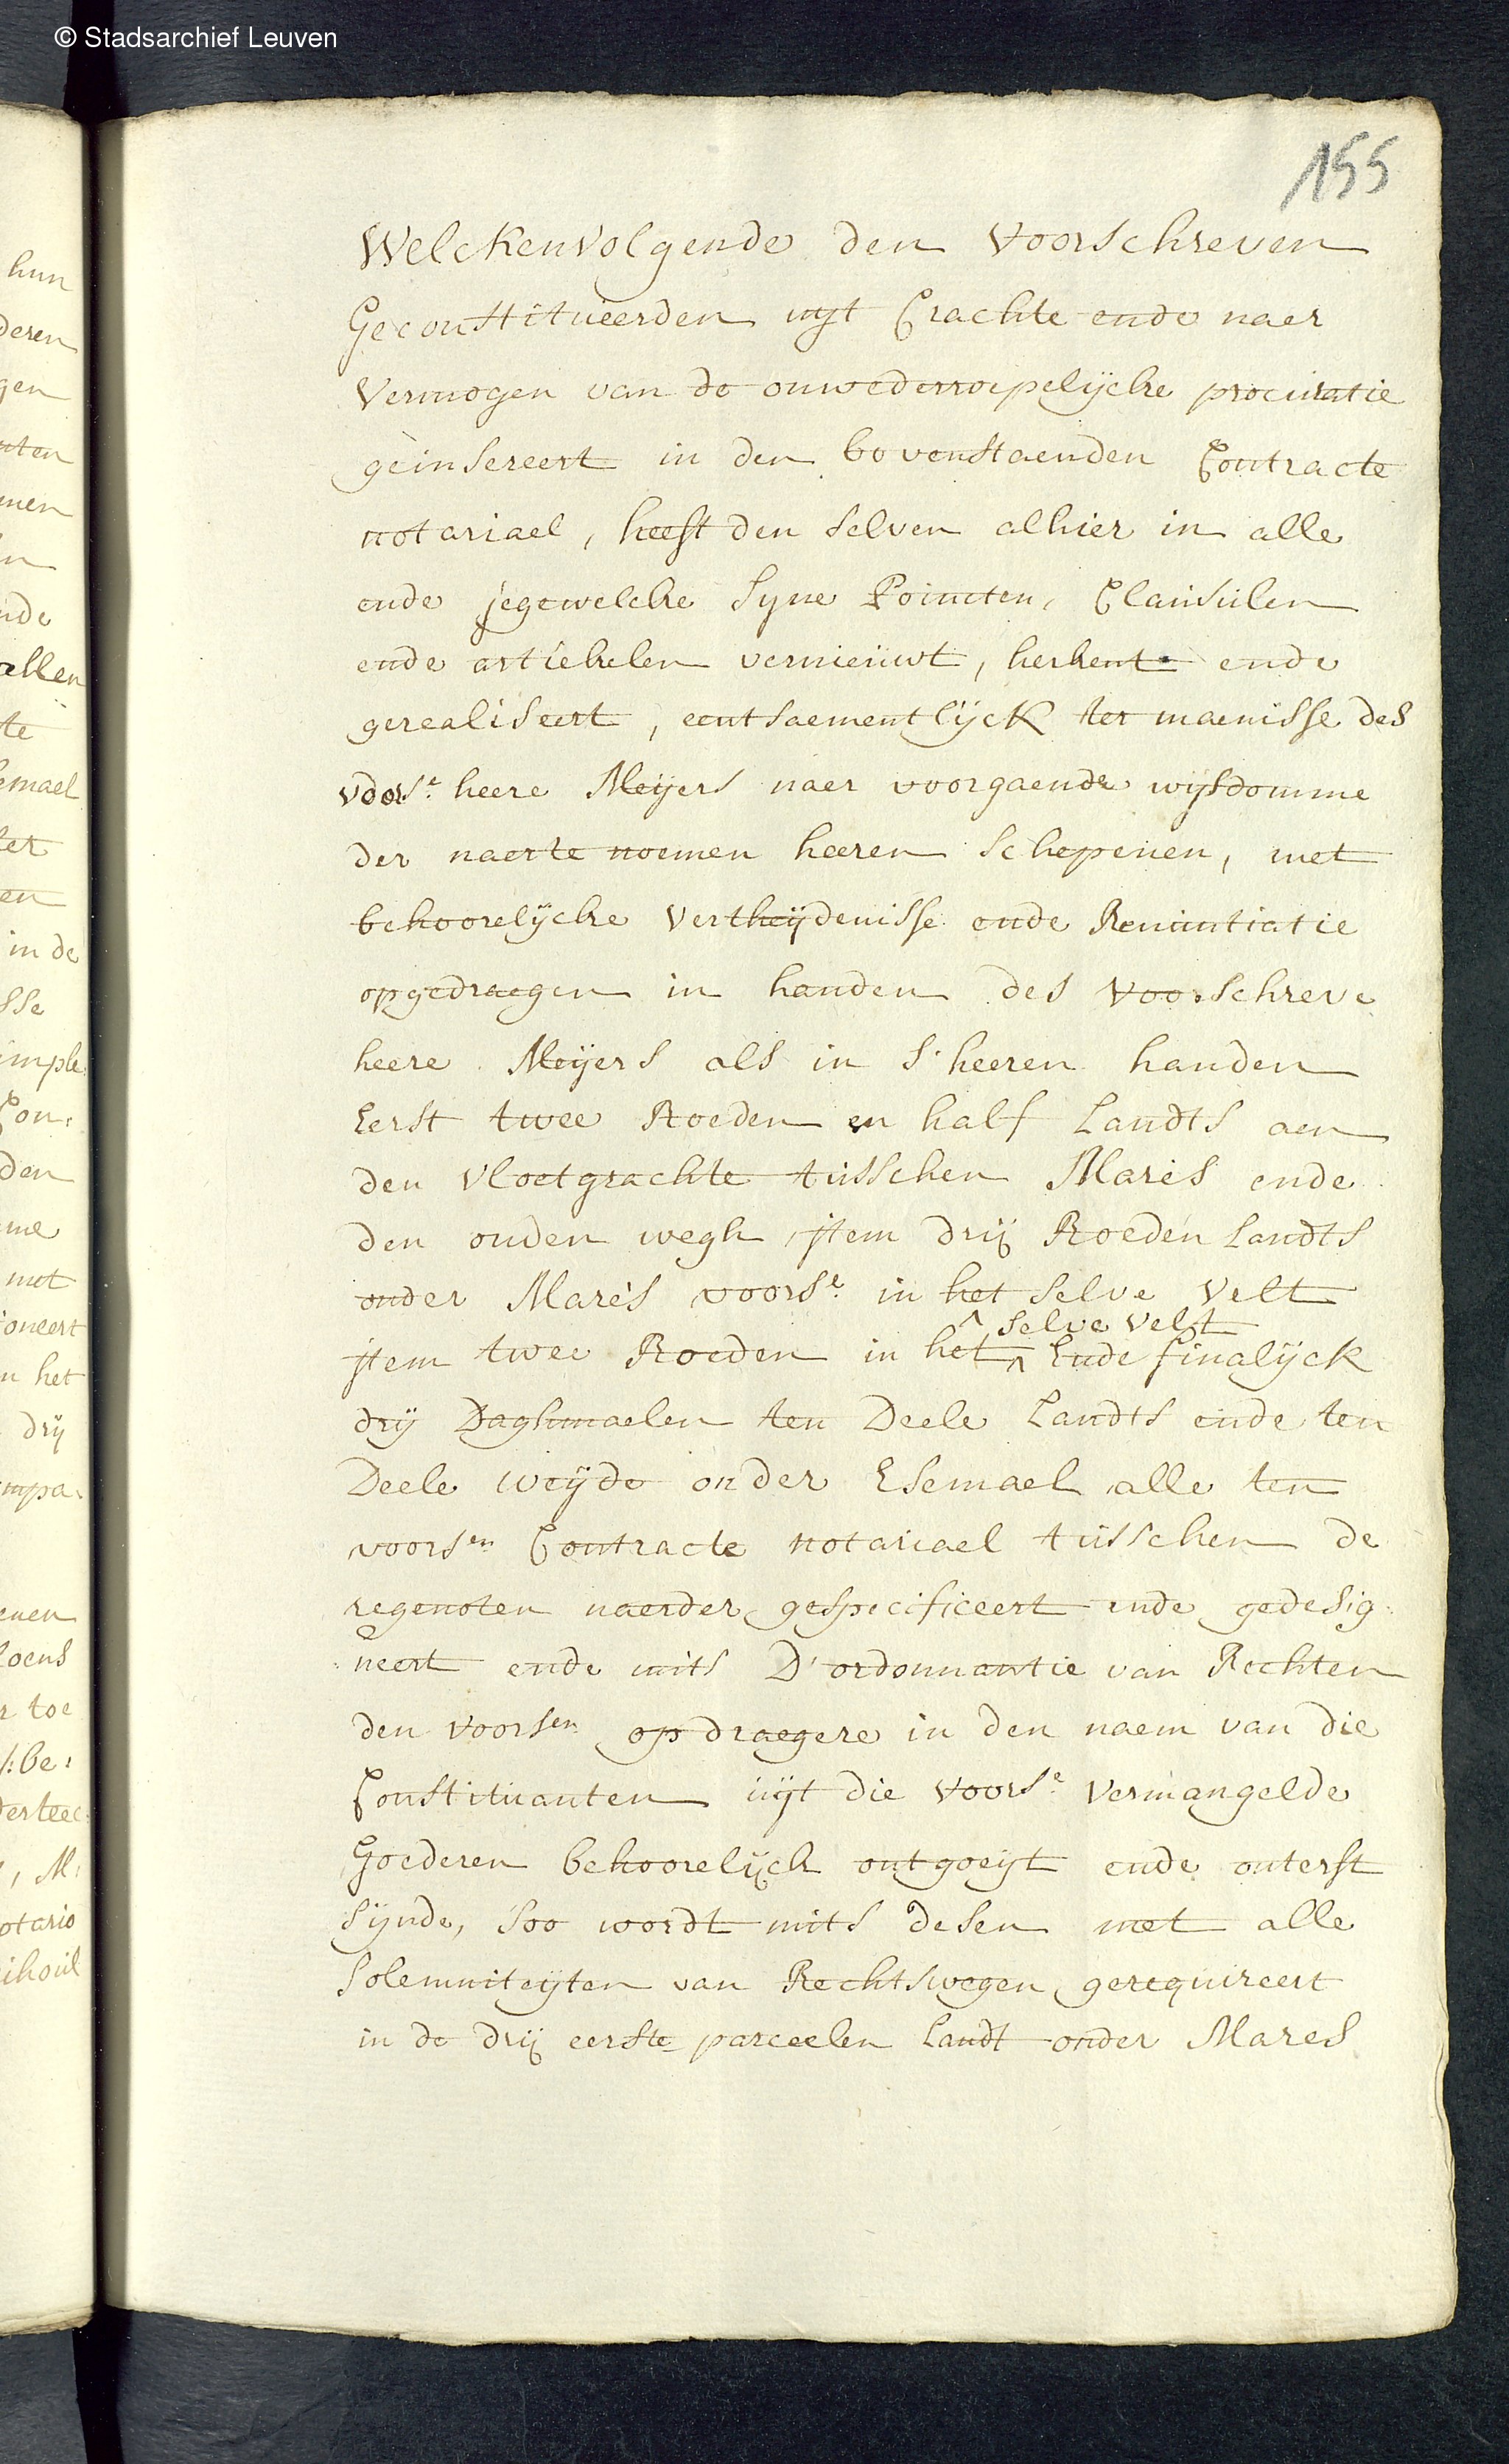 © Stadsarchief Leuven
155
Welckenvolgende den voorschreven
Geconstitueerden uyt Crachte ende naer
Vermogen van de onwederroepelijcke procuratie
geinsereert in den bovenstaenden Contracte
notariael, heeft den selven alhier in alle
ende jegewelcke Syne Pointen, Clausulen
ende artickelen vernieuwt, herkent ende
gerealiseert, eentsaementlijck ter maenisse des
voors:e heere Meijers naer voorgaende wijsdomme
der naerte noemen heeren Schepenen, met
behoorelijcke vertheijdenisse ende Renuntiatie
opgedraegen in handen des voorschreve
heere Meijers als in S'heeren handen
Eerst twee Roeden en half Landts aen
den vloetgrachte tusschen Marés ende
den ouden wegh jtem drij Roeden Landts
onder Marés voors:e in het selve velt
selve velt
jtem twee Roeden in het ^ Ende finalijck
drij Daghmaelen ten Deele Landts ende ten
Deele weijde onder Esemael alle ten
voorsen Contracte notariael tusschen de
regenoten naerder gespecificeert ende gedesig:
:neert ende mits D'ordonnantie van Rechten
den voorsen opdraegere in den naem van die
Constituanten uijt die voors:e vermangelde
Goederen behoorelijck ontgoeijt ende onterft
Sijnde, soo wordt mits desen met alle
Solemniteijten van Rechtswegen gerequireert
in de drij eerste parceelen Landt onder Mares
hun
deren
gen
men
allen
te
emael
en
in de
sse
imple:
Con:
den
me
met
oneert
n het
drij
mpa:
enen
loens
r toe
/:be:
, M:
otario